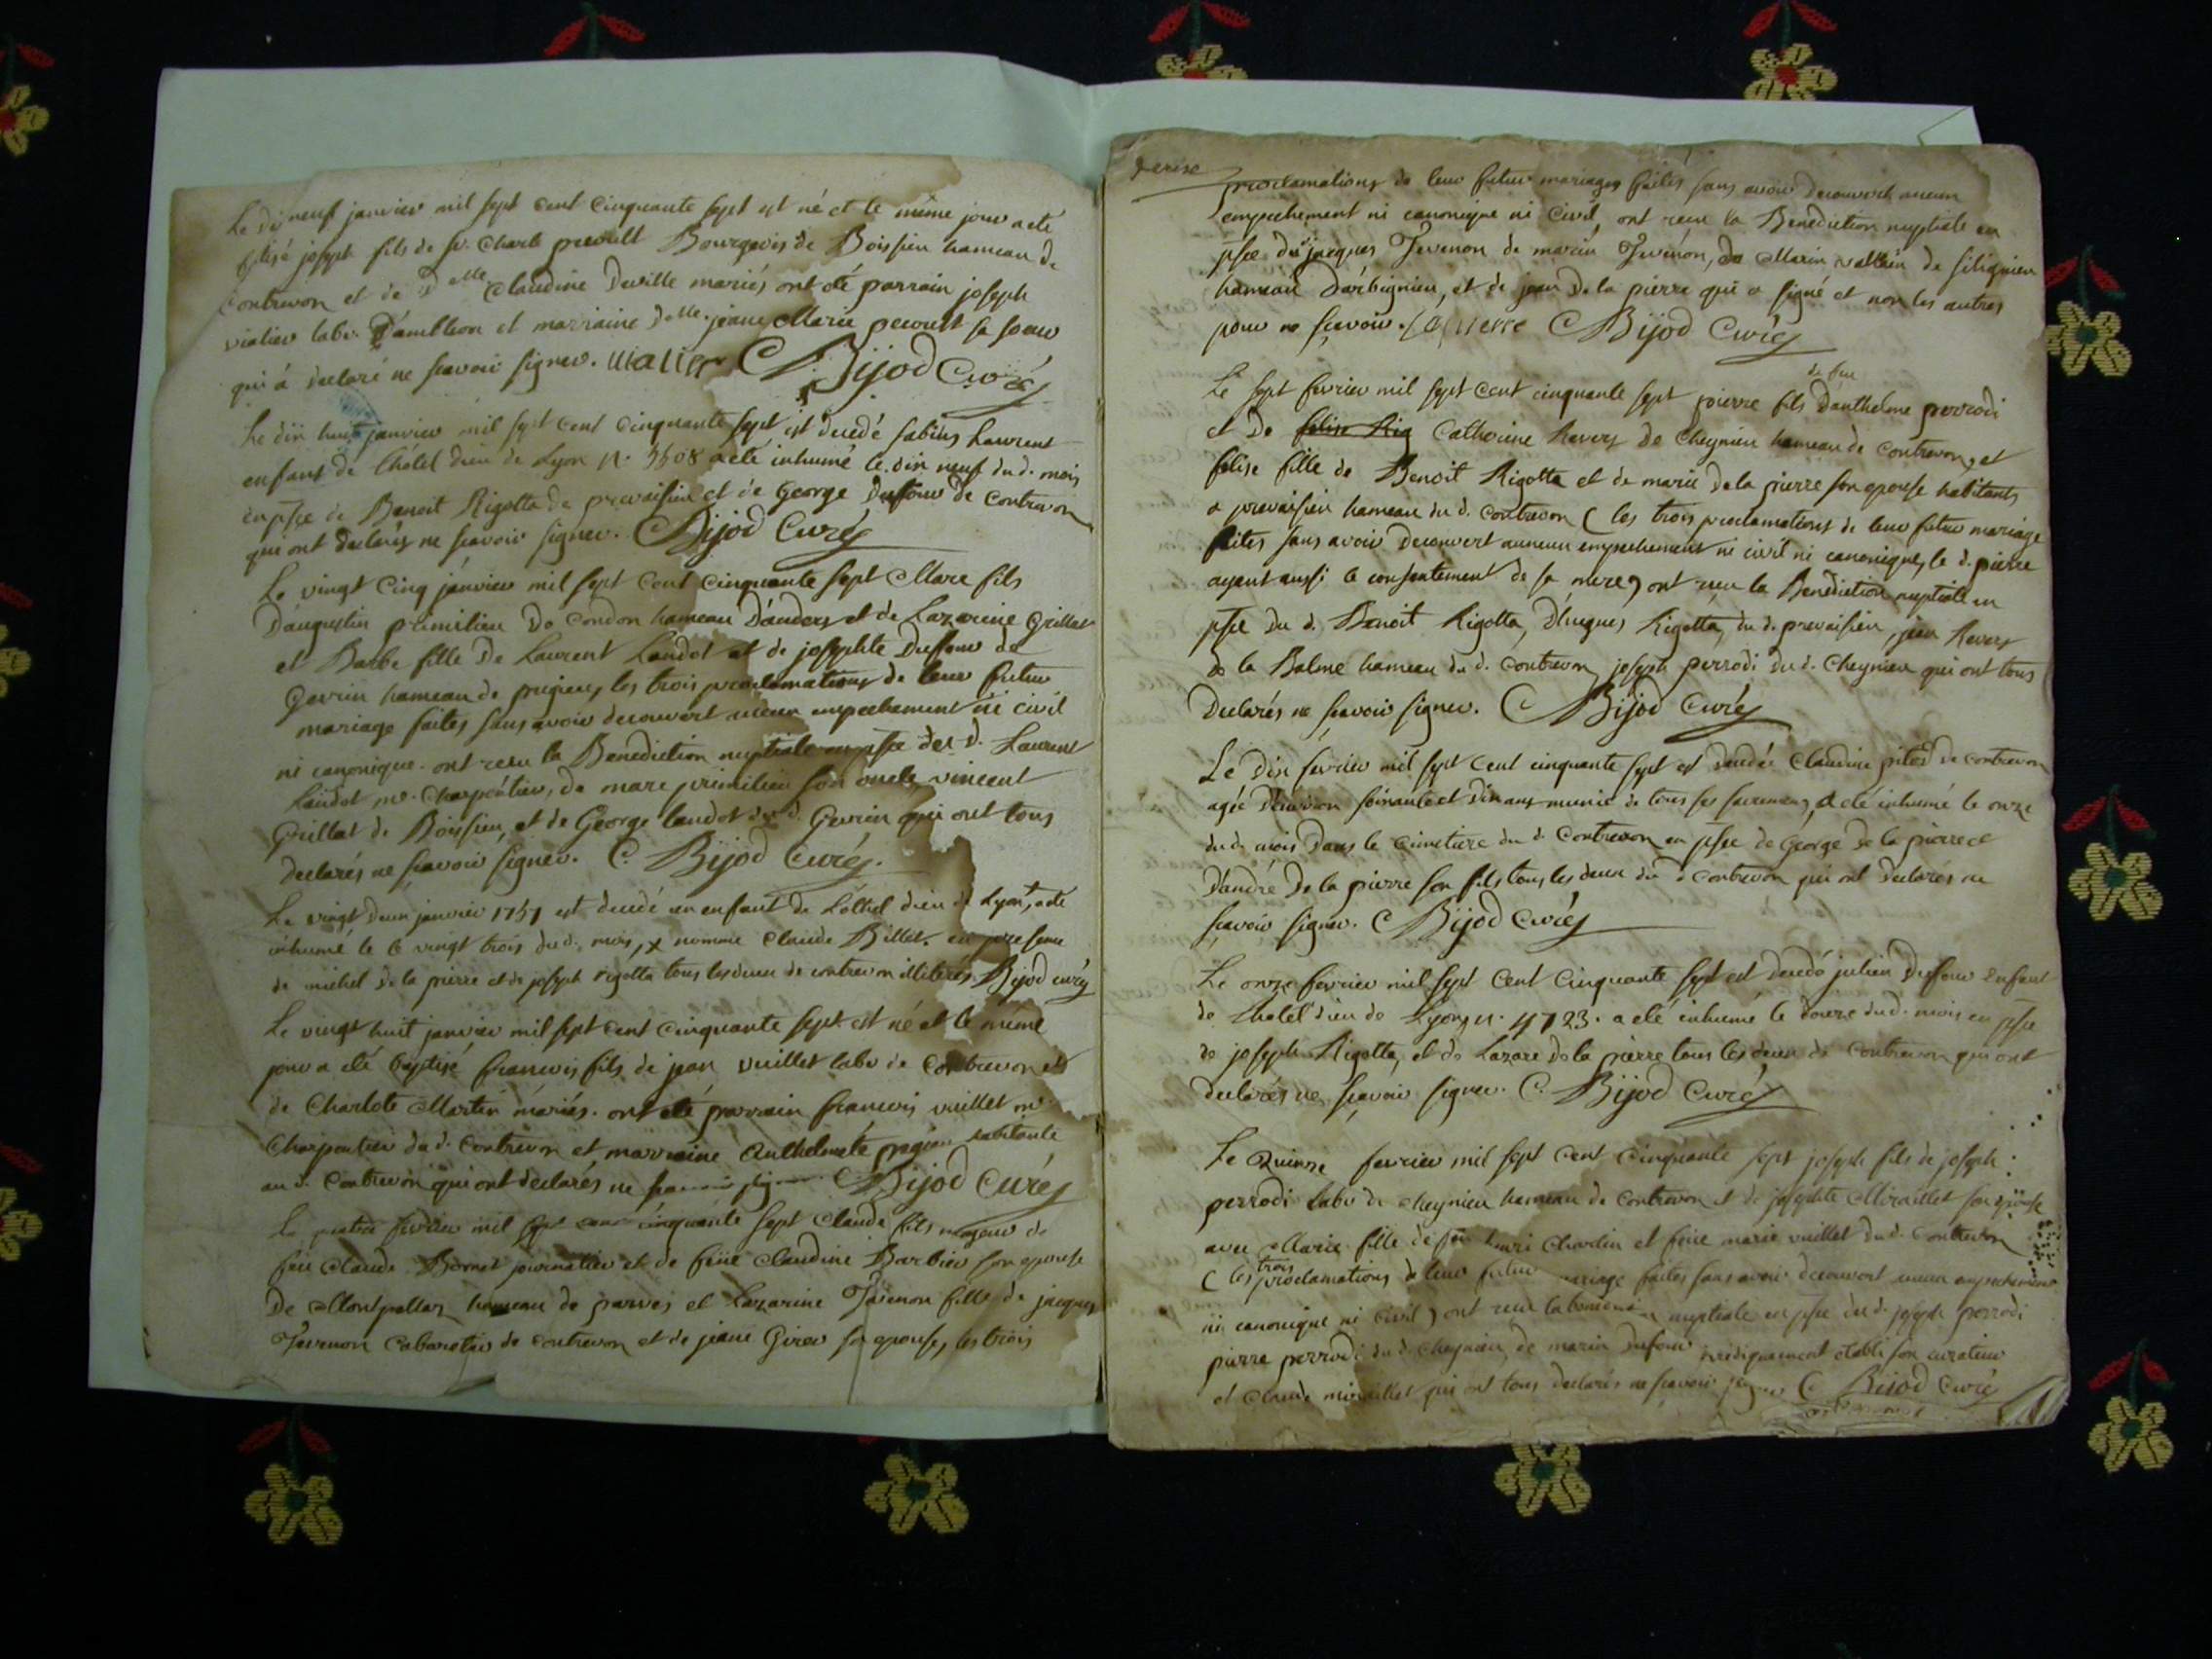 Le dix neuf janvier mil sept cent cinquante sept est né et le même jour a eté
joseph fils de sr. Charle Bourgeois de Boissieu hameau de
Contrevon et de dlle Claudine Deville mariés ont eté parrain joseph
labr. D'ambleon et marraine dlle. jeane Marie sa soeur
qui a declaré ne scavoir signer. C Bijod Curé
Le dix huit janvier mil sept cent cinquante sept est decedé Laurent
enfant de l'hôtel dieu de Lyon n. a eté inhumé le dix neuf du d. mois
en psce de Benoit Rigotta de prevaisieu et de George Dufour de Contrevon
qui ont declarés ne scavoir signer. C Bijod Curé
Le vingt cinq janvier mil sept cent cinquante sept Marc fils
D'augustin primilieu De Condon hameau D'anders et de Lazarine Grillat
et Barbe fille De Laurent Landot et de josephte Dufour de
Gevrin hameau de les trois proclamations de leur futur
mariage faites sans avoir decouvert aucun empechement ni civil
ni canonique. ont recu la Benediction nuptiale en psce du d. Laurent
Landot me. Charpentier, de marc primilieu son oncle, vincent
Grillat de Boissieu, et de George landot du d. Gevrin qui ont tous
declarés ne scavoir signer. C. Bijod Curé.
Le vingt deux janvier 1757 est decedé un enfant de L'ôtel dieu de Lyon, a eté
inhumé le le vingt trois du d. mois, x nommé Claude Billet. en presence
de michel de la pierre et de joseph rigotta tous les deux de contrevon illiterés Bijod curé
Le vingt huit janvier mil sept cent cinquante sept est né et le même
jour a eté baptisé francois fils de jean vuillet labr de Contrevon et
de Charlote Martin mariés. ont eté parrain francois vuillet me
Charpentier du d. Contrevon et marraine Anthelmete habitante
au d. Contrevon qui ont declarés ne scavoir signer C Bijod Curé
Le quatre fevrier mil sept cent cinquante sept Claude fils majeur de
feu Claude Bornet journalier et de feüe Claudine Barbier son epouse
De Montpellaz hameau de parves et Lazarine Tevenon fille de jacques
Tevenon Cabaretier de contrevon et de jeane Girer sa epouse, les trois
proclamations de leur futur mariages faites sans avoir decouvert aucun
empechement ni canonique ni Civil, ont recu la Benediction nuptiale en
psce du jacques Tevenon de marin Tevenon, de Marin vallein de silignieu
hameau D'arbignieu, et de jean De la pierre qui a signé et non les autres
pour ne scavoir. C Bijod Curé
de feu
Le sept fevrier mil sept cent cinquante sept pierre fils D'anthelme perrodi
et De felise Rig Catherine Revery de Cheynieu hameau de Contrevon, et
felise fille de Benoit Rigotta et de marie de la pierre son epouse habitants
a prevaisieu hameau du d. Contrevon ( les trois proclamations de leur futur mariage
faites sans avoir decouvert aucun empechement ni civil ni canonique, le d. pierre
ayant aussi le consentement de sa mere ) ont recu la Benediction nuptiale en
psce du d. Benoit Rigotta, D'hugues Rigotta, du d. prevaisieu, jean Revery
de la Balme hameau du d. Contrevon, joseph perrodi du d. Cheynieu qui ont tous
Declarés ne scavoir signer. C Bijod Curé
Le Dix fevrier mil sept cent cinquante sept est decedée Claudine de contrevon
agée D'environ soixante et dix ans munie de tous ses sacremens, a eté inhumé le onze
du d. mois Dans le Cimetiere du d. Contrevon en psce de George de la pierre et
D'andré De la pierre son fils tous les deux du d Contrevon qui ont Declarés ne
scavoir signer. C Bijod Curé
Le onze fevrier mil sept cent cinquante sept est decedé julien Dufour enfant
de l'hotel dieu de Lyon, n. 4723. a eté inhumé le douze du d. mois en psce
de joseph Rigotta, et de Lazare de la pierre tous les deux de Contrevon qui ont
declarés ne scavoir signer. C. Bijod Curé
Le Quinze fevrier mil sept cent cinquante sept joseph fils de joseph
perrodi labr de cheynieu hameau de Contrevon et de josephte Miraillet son epouse
avec Marie fille de feu Chardin et feüe marie vuillet du d. Contrevon
( les trois proclamations de leur futur mariage faites sans avoir decouvert aucun empechement
ni canonique ni civil ) ont recu la benediction nuptiale en psce du d. joseph perrodi
pierre perrodi du d. Cheynieu, de marin Dufour etabli son curateur
et Claude miraillet qui ont tous declarés ne scavoir signer C Bijod Curé